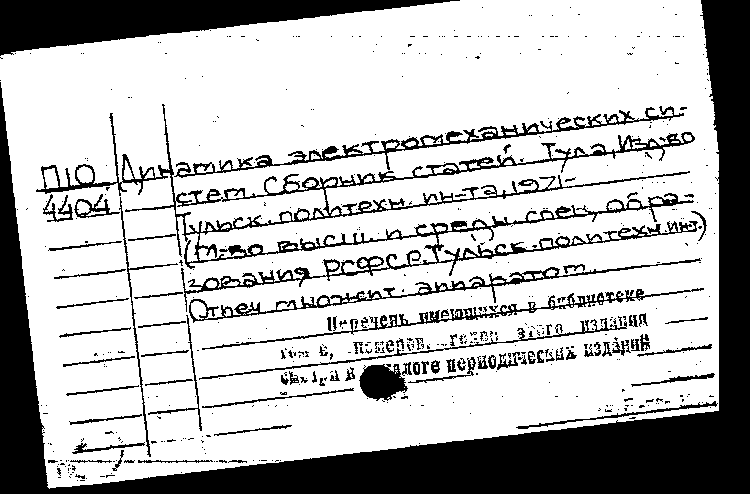 П10 Динамика электромеханических си-
4404 стем. Сборник статей. Тула, Изд-во
Тульск. политехн. ин-та, 1971-
(М-во высш. и средн. спец. обра-
зования РСФСР. Тульск. политехн. инт.)
Отпеч множит. аппаратом.
Перечень имеющихся в библиотеке
томов, номеров, годов этого издания
смотри в каталоге периодических изданий